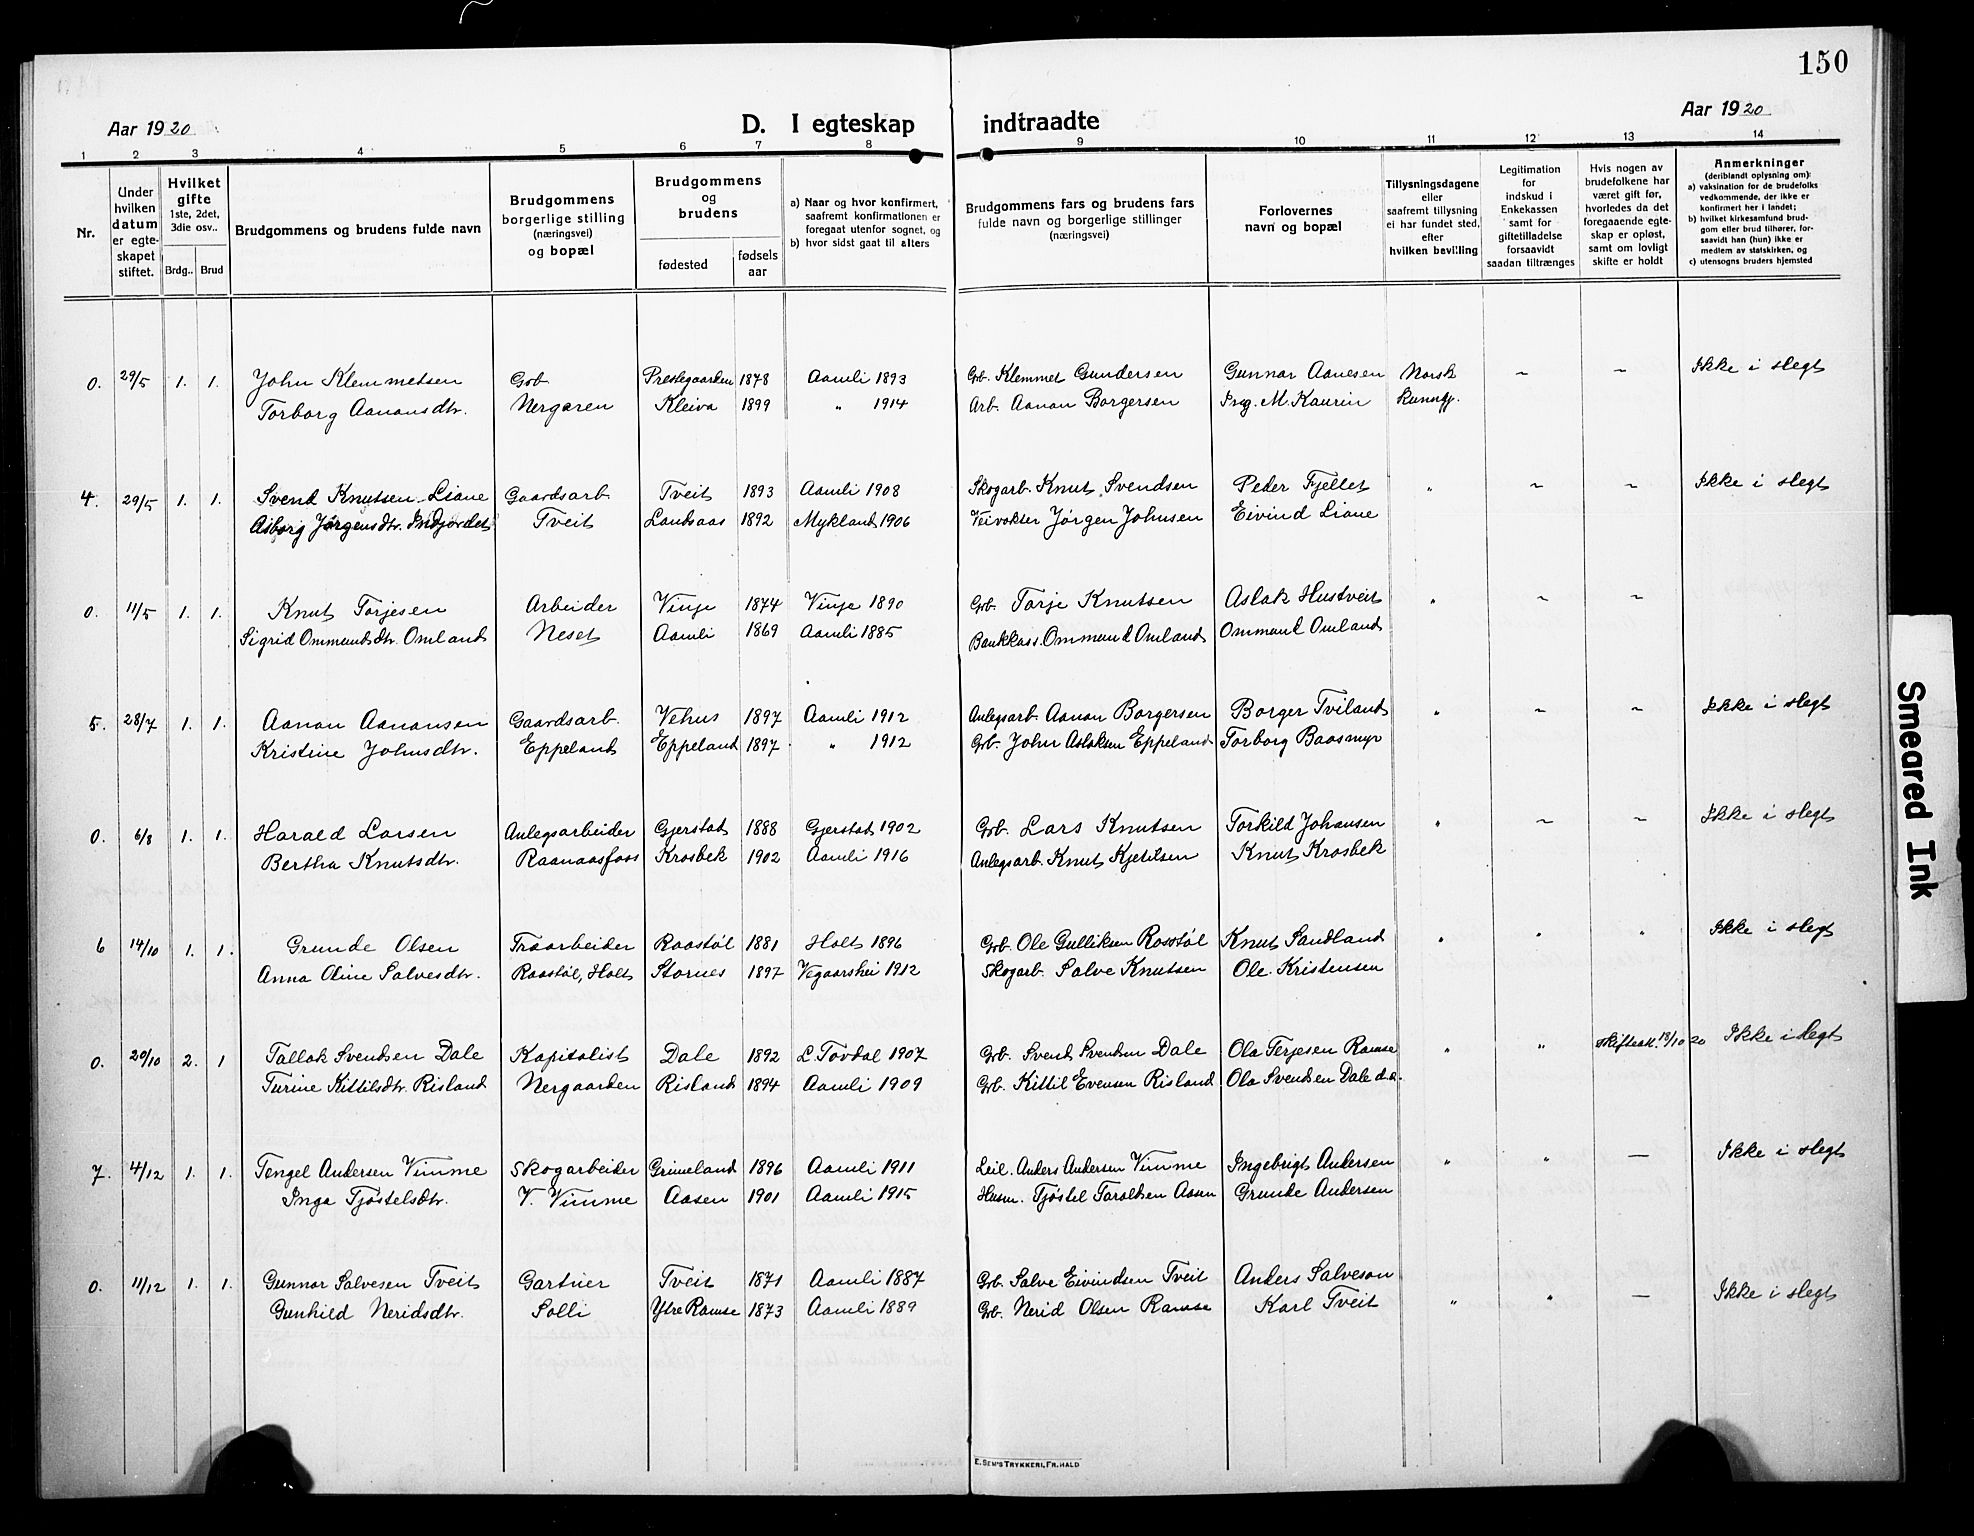 150
Aar 1920
D. I egteskap indtraadte
Aar 1920
1 2 3 4 5 6 7 8 9 10 11 12 13 14
Nr.
Under hvilken datum er egteskapet stiftet.
Hvilket gifte 1ste, 2det, 3die osv..
Brdg.. Brud
Brudgommens og brudens fulde navn
Brudgommens borgerlige stilling (næringsvei) og bopæl
Brudgommens og brudens
fødested
fødsels aar
a) Naar og hvor konfirmert, saafremt konfirmationen er foregaat utenfor sognet, og
b) hvor sidst gaat til alters
Brudgommens fars og brudens fars fulde navn og borgerlige stillinger (næringsvei)
Forlovernes navn og bopæl
Tillysningsdagene eller saafremt tillysning ei har fundet sted, efter hvilken bevilling
Legitimation for indskud i Enkekassen samt for giftetilladelse forsaavidt saadan tiltrænges
Hvis nogen av brudefolkene har været gift før, hvorledes da det foregaaende egteskap er opløst, samt om lovligt skifte er holdt
Anmerkninger (deriblandt oplysning om):
a) vaksination for de brudefolks vedkommende, der ikke er konfirmert her i landet;
b) hvilket kirkesamfund brudgom eller brud tilhører, forsaavidt han (hun) ikke er medlem av statskirken, og
c) utensogns bruders hjemsted
0. 29/5 1. 1. John Klemmetsen Grb. Prestegaarden 1878 Aamli 1893 Grb. Klemmet Gundersen Gunnar Aanesen Norsk ~ ~ Ikke i slegt
Torborg Aanansdtr. Nergaren Kleiva 1899 " 1914 Arb. Aanan Borgersen Ing. M. Kaurin
4. 29/5 1. 1. Svend Knutsen Liane Gaardsarb. Tveit 1893 Aamli 1908 Skogarb. Knut Svendsen Peder Fjellet " ~ ~ Ikke i slegt
Asborg Jørgensdtr. Indjordet Tveit Landsaas 1892 Mykland 1906 Veivokter Jørgen Johnsen Eivind Liane
0. 11/5 1. 1. Knut Torjesen Arbeider Vinje 1874 Vinje 1890 Grb. Torje Knutsen Aslak Hustveit " ~ ~
Sigrid Ommundsdtr. Omland Neset Aamli 1869 Aamli 1885 Bankkass. Ommund Omland Ommund Omland
5. 28/7 1. 1. Aanan Aanansen Gaardsarb. Vehus 1897 Aamli 1912 Anlegsarb. Aanan Borgersen Borger Tviland " ~ ~ Ikke i slegt
Kristine Johnsdtr. Eppeland Eppeland 1897 " 1912 Grb. John Aslaksen Eppeland Torborg Baasmyr
0. 6/8 1. 1. Harald Larsen Anlegsarbeider Gjerstad 1888 Gjerstad 1902 Grb. Lars Knutsen Torkild Johansen " ~ ~ Ikke i slegt
Bertha Knutsdtr. Raanaasfoss Krosbek 1902 Aamli 1916 Anlegsarb. Knut Kjetilsen Knut Krosbek
6 14/10 1. 1. Grunde Olsen Træarbeider Raastøl 1881 Holt 1896 Grb. Ole Gulliksen Rosstøl Knut Sandland " " " Ikke i slegt
Anna Oline Salvesdtr. Raastøl, Holt Stornes 1897 Vegaarshei 1912 Skogarb. Salve Knutsen Ole Kristensen
0. 20/10 2. 1 Tallak Svendsen Dale Kapitalist Dale 1892 L. Tovdal 1907 Grb. Svend Svendsen Dale Ola Terjesen Ramse " " Skifteatt. 18/10 20 Ikke i slegt
Turine Kittilsdtr. Risland Nergaarden Risland 1894 Aamli 1909 Grb. Kittil Evensen Risland Ola Svendsen Dale d.a.
7. 4/12 1. 1. Tengel Andersen Vimme Skogarbeider Grimeland 1896 Aamli 1911 Leil. Anders Andersen Vimme Ingebrigt Andersen " " — Ikke i slegt
Inga Tjøstelsdtr. V. Vimme Aasen 1901 Aamli 1915 Husm. Tjøstel Taraldsen Aasen Grunde Andersen
0. 11/12 1. 1. Gunnar Salvesen Tveit Gartner Tveit 1871 Aamli 1887 Grb. Salve Eivindsen Tveit Anders Salveson " " — Ikke i slegt
Gunhild Neridsdtr. Solli Ytre Ramse 1873 Aamli 1889 Grb. Nerid Olsen Ramse Karl Tveit
E. Sem's Trykkeri, Fr.hald
Smeared Ink